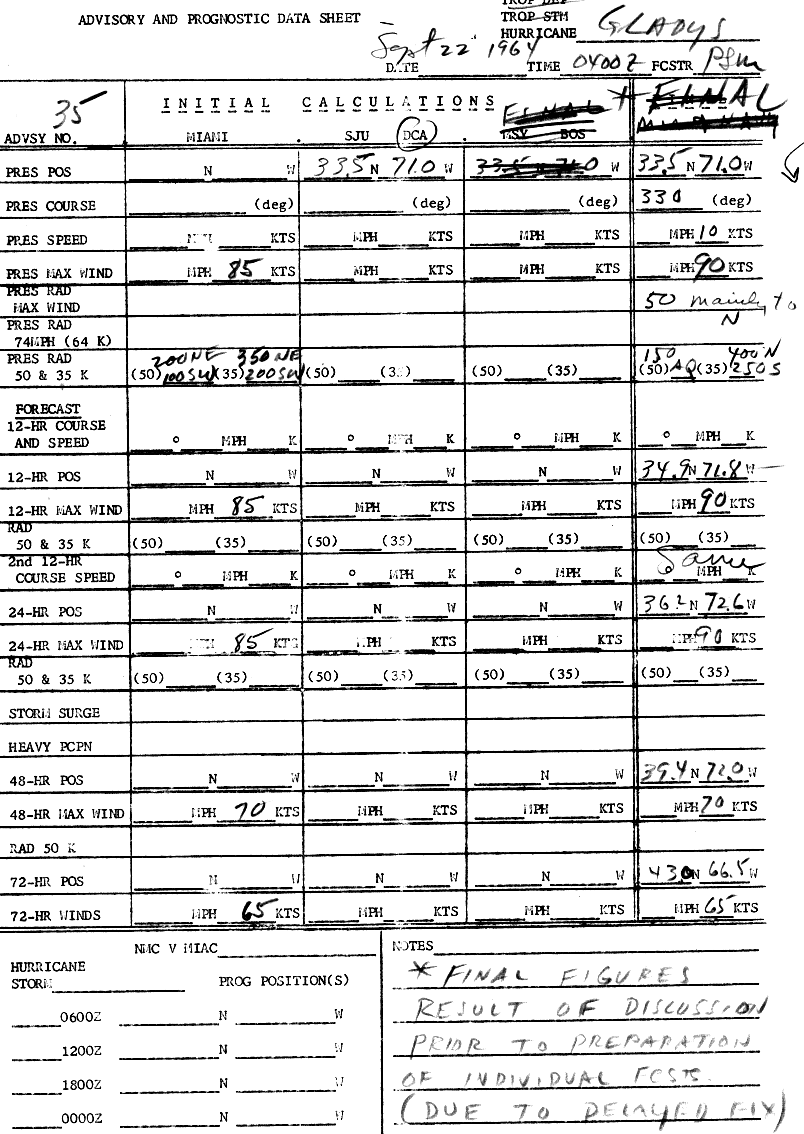 TROP DEP
ADVISORY AND PROGNOSTIC DATA SHEET TROP STM
HURRICANE GLADYS
Sept 22 1964
DATE TIME 0400Z FCSTR
35 INITIAL CALCULATIONS FINAL * FINAL
ADVSY NO. MIAMI SJU DCA MSY BOS
PRES POS N W 33.5 N 71.0 W 33.5 N 71.0 W 33.5 N 71.0 W
PRES COURSE (deg) (deg) (deg) 330 (deg)
PRES SPEED MPH KTS MPH KTS MPH KTS MPH 10 KTS
PRES MAX WIND MPH 85 KTS MPH KTS MPH KTS MPH 90 KTS
PRES RAD
MAX WIND 50 mainly to
N
PRES RAD
74MPH (64 K)
PRES RAD 200NE 350NE 150 400N
50 & 35 K (50) 100SW (35) 200SW (50) (35) (50) (35) (50) AQ (35) 250S
FORECAST
12-HR COURSE
AND SPEED ° MPH K ° MPH K ° MPH K ° MPH K
12-HR POS N W N W N W 34.9 N 71.8 W
12-HR MAX WIND MPH 85 KTS MPH KTS MPH KTS MPH 90 KTS
RAD
50 & 35 K (50) (35) (50) (35) (50) (35) (50) (35)
2nd 12-HR Same
COURSE SPEED ° MPH K ° MPH K ° MPH K MPH K
24-HR POS N W N W N W 36.2 N 72.6 W
24-HR MAX WIND MPH 85 KTS MPH KTS MPH KTS MPH 90 KTS
RAD
50 & 35 K (50) (35) (50) (35) (50) (35) (50) (35)
STORM SURGE
HEAVY PCPN
48-HR POS N W N W N W 39.4 N 72.0 W
48-HR MAX WIND MPH 70 KTS MPH KTS MPH KTS MPH 70 KTS
RAD 50 K
72-HR POS N W N W N W 43.0 N 66.5 W
72-HR WINDS MPH 65 KTS MPH KTS MPH KTS MPH 65 KTS
NMC V MIAC
HURRICANE
STORM PROG POSITION(S)
0600Z N W
1200Z N W
1800Z N W
0000Z N W
NOTES
* FINAL FIGURES
RESULT OF DISCUSSION
PRIOR TO PREPARATION
OF INDIVIDUAL FCSTS.
(DUE TO DELAYED FIX)